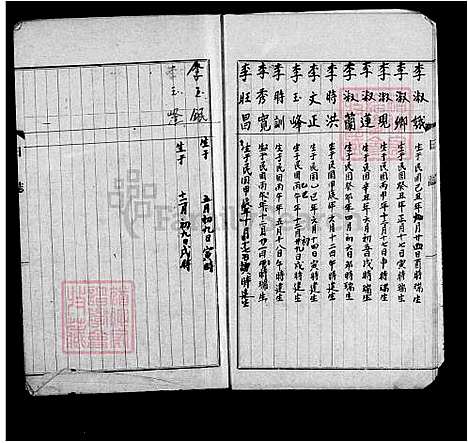 李淑娥 生于民國己丑年 月廿四日酉時瑞生
李淑卿 生于民國癸丑年正月十七日寅時瑞生
李淑現 生于民國丙申年十二月十七日申時瑞生
李淑蓮 生于民國辛丑年六月初五日戌時瑞生
李淑蘭 生于民國癸卯年四月初六日 時瑞生
李時洪 生于民國甲辰年六月十二日午時 生
李文正 生于民國乙巳年六月十四日寅時建生
李玉峰 生于民國丙午年十二月初九日戌時建生
李時訓 生于民國丙午年五月十八日午時建生
李秀寬 生于民國丙 年十二月廿二日 時瑞生
李旺昌 生于民國甲辰年十月十七日 時建生
李玉銀 生于 五月初九日寅時
李玉峰 生于 十二月初九日戌時
日誌